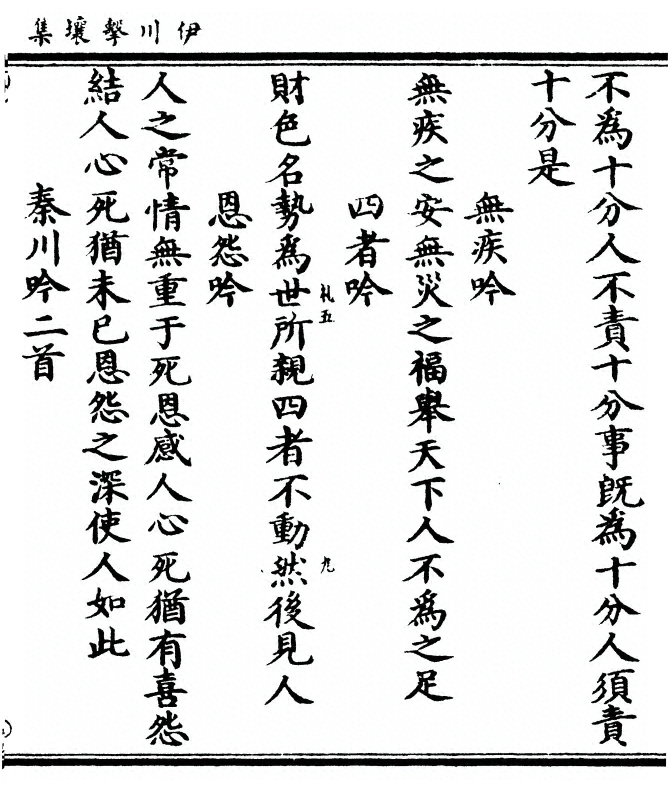 伊川擊壤集
不爲十分人不責十分事旣爲十分人須責
十分是
無疾吟
無疾之安無災之福舉天下人不爲之足
四者吟
財色名勢爲世所親四者不動然後見人
札五
九
恩怨吟
人之常情無重于死恩感人心死猶有喜怨
結人心死猶未已恩怨之深使人如此
秦川吟二首